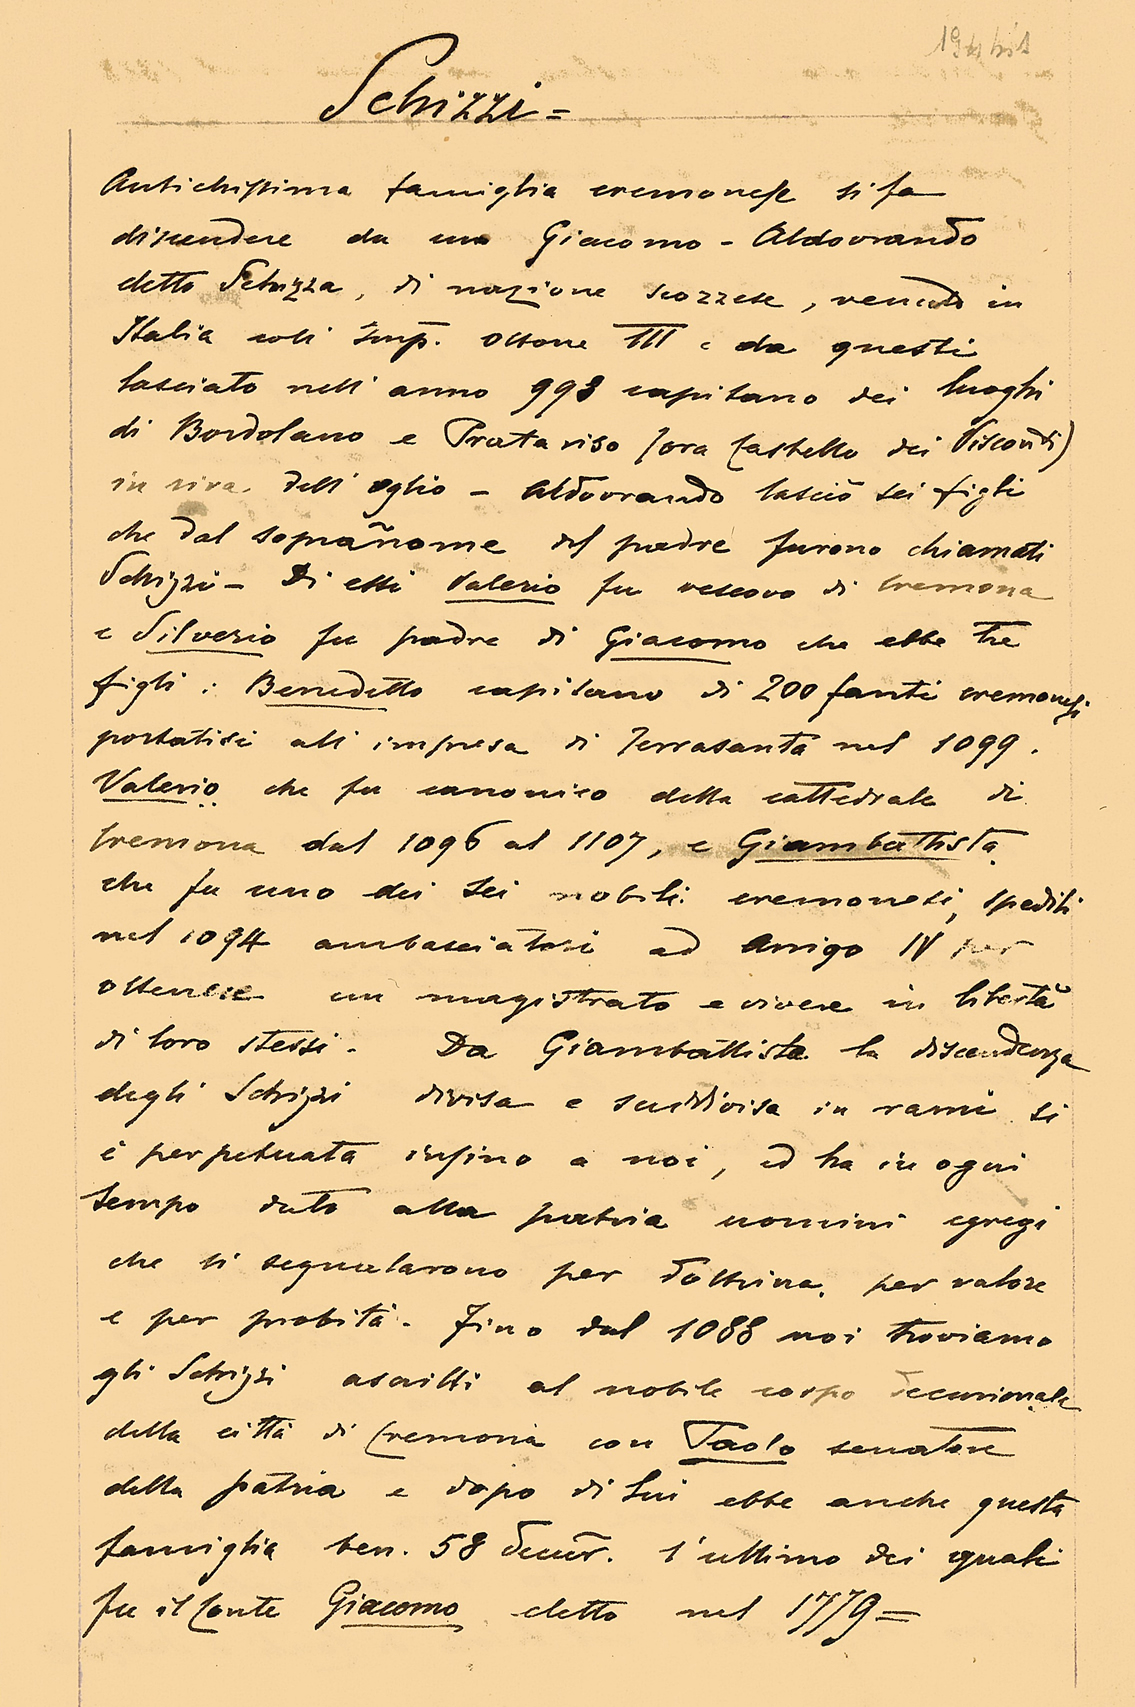 Schizzi =
Antichissima famiglia cremonese si fa
discendere da un Giacomo - Aldovrando
detto Schizza, di nazione scozzese, venuto in
Italia coll' Imp. Ottone III e da questi
lasciato nell' anno 998 capitano dei luoghi
di Bordolano e Prataviso (ora Castello dei Visconti)
in riva dell' oglio - Aldovrando lasciò sei figli
che dal soprañome del padre furono chiamati
Schizzi - Di essi Valerio fu vescovo di Cremona
e Silverio fu padre di Giacomo che ebbe tre
figli : Benedetto capitano di 200 fanti cremonesi
portatisi all' impresa di Terrasanta nel 1099.
Valerio che fu canonico della cattedrale di
Cremona dal 1096 al 1107, e Giambattista
che fu uno dei sei nobili cremonesi, spediti
nel 1094 ambasciatori ad Arrigo IV per
ottenere un magistrato e vivere in libertà
di loro stessi. Da Giambattista la discendenza
degli Schizzi divisa e suddivisa in rami si
è perpetuata infino a noi, ed ha in ogni
tempo dato alla patria uomini egregi
che si segnalarono per dottrina, per valore
e per probità. Fino dal 1088 noi troviamo
gli Schizzi ascritti al nobile corpo decurionale
della città di Cremona con Paolo senatore
della patria e dopo di lui ebbe anche questa
famiglia ben. 58 decur. l'ultimo dei quali
fu il Conte Giacomo eletto nel 1779 =